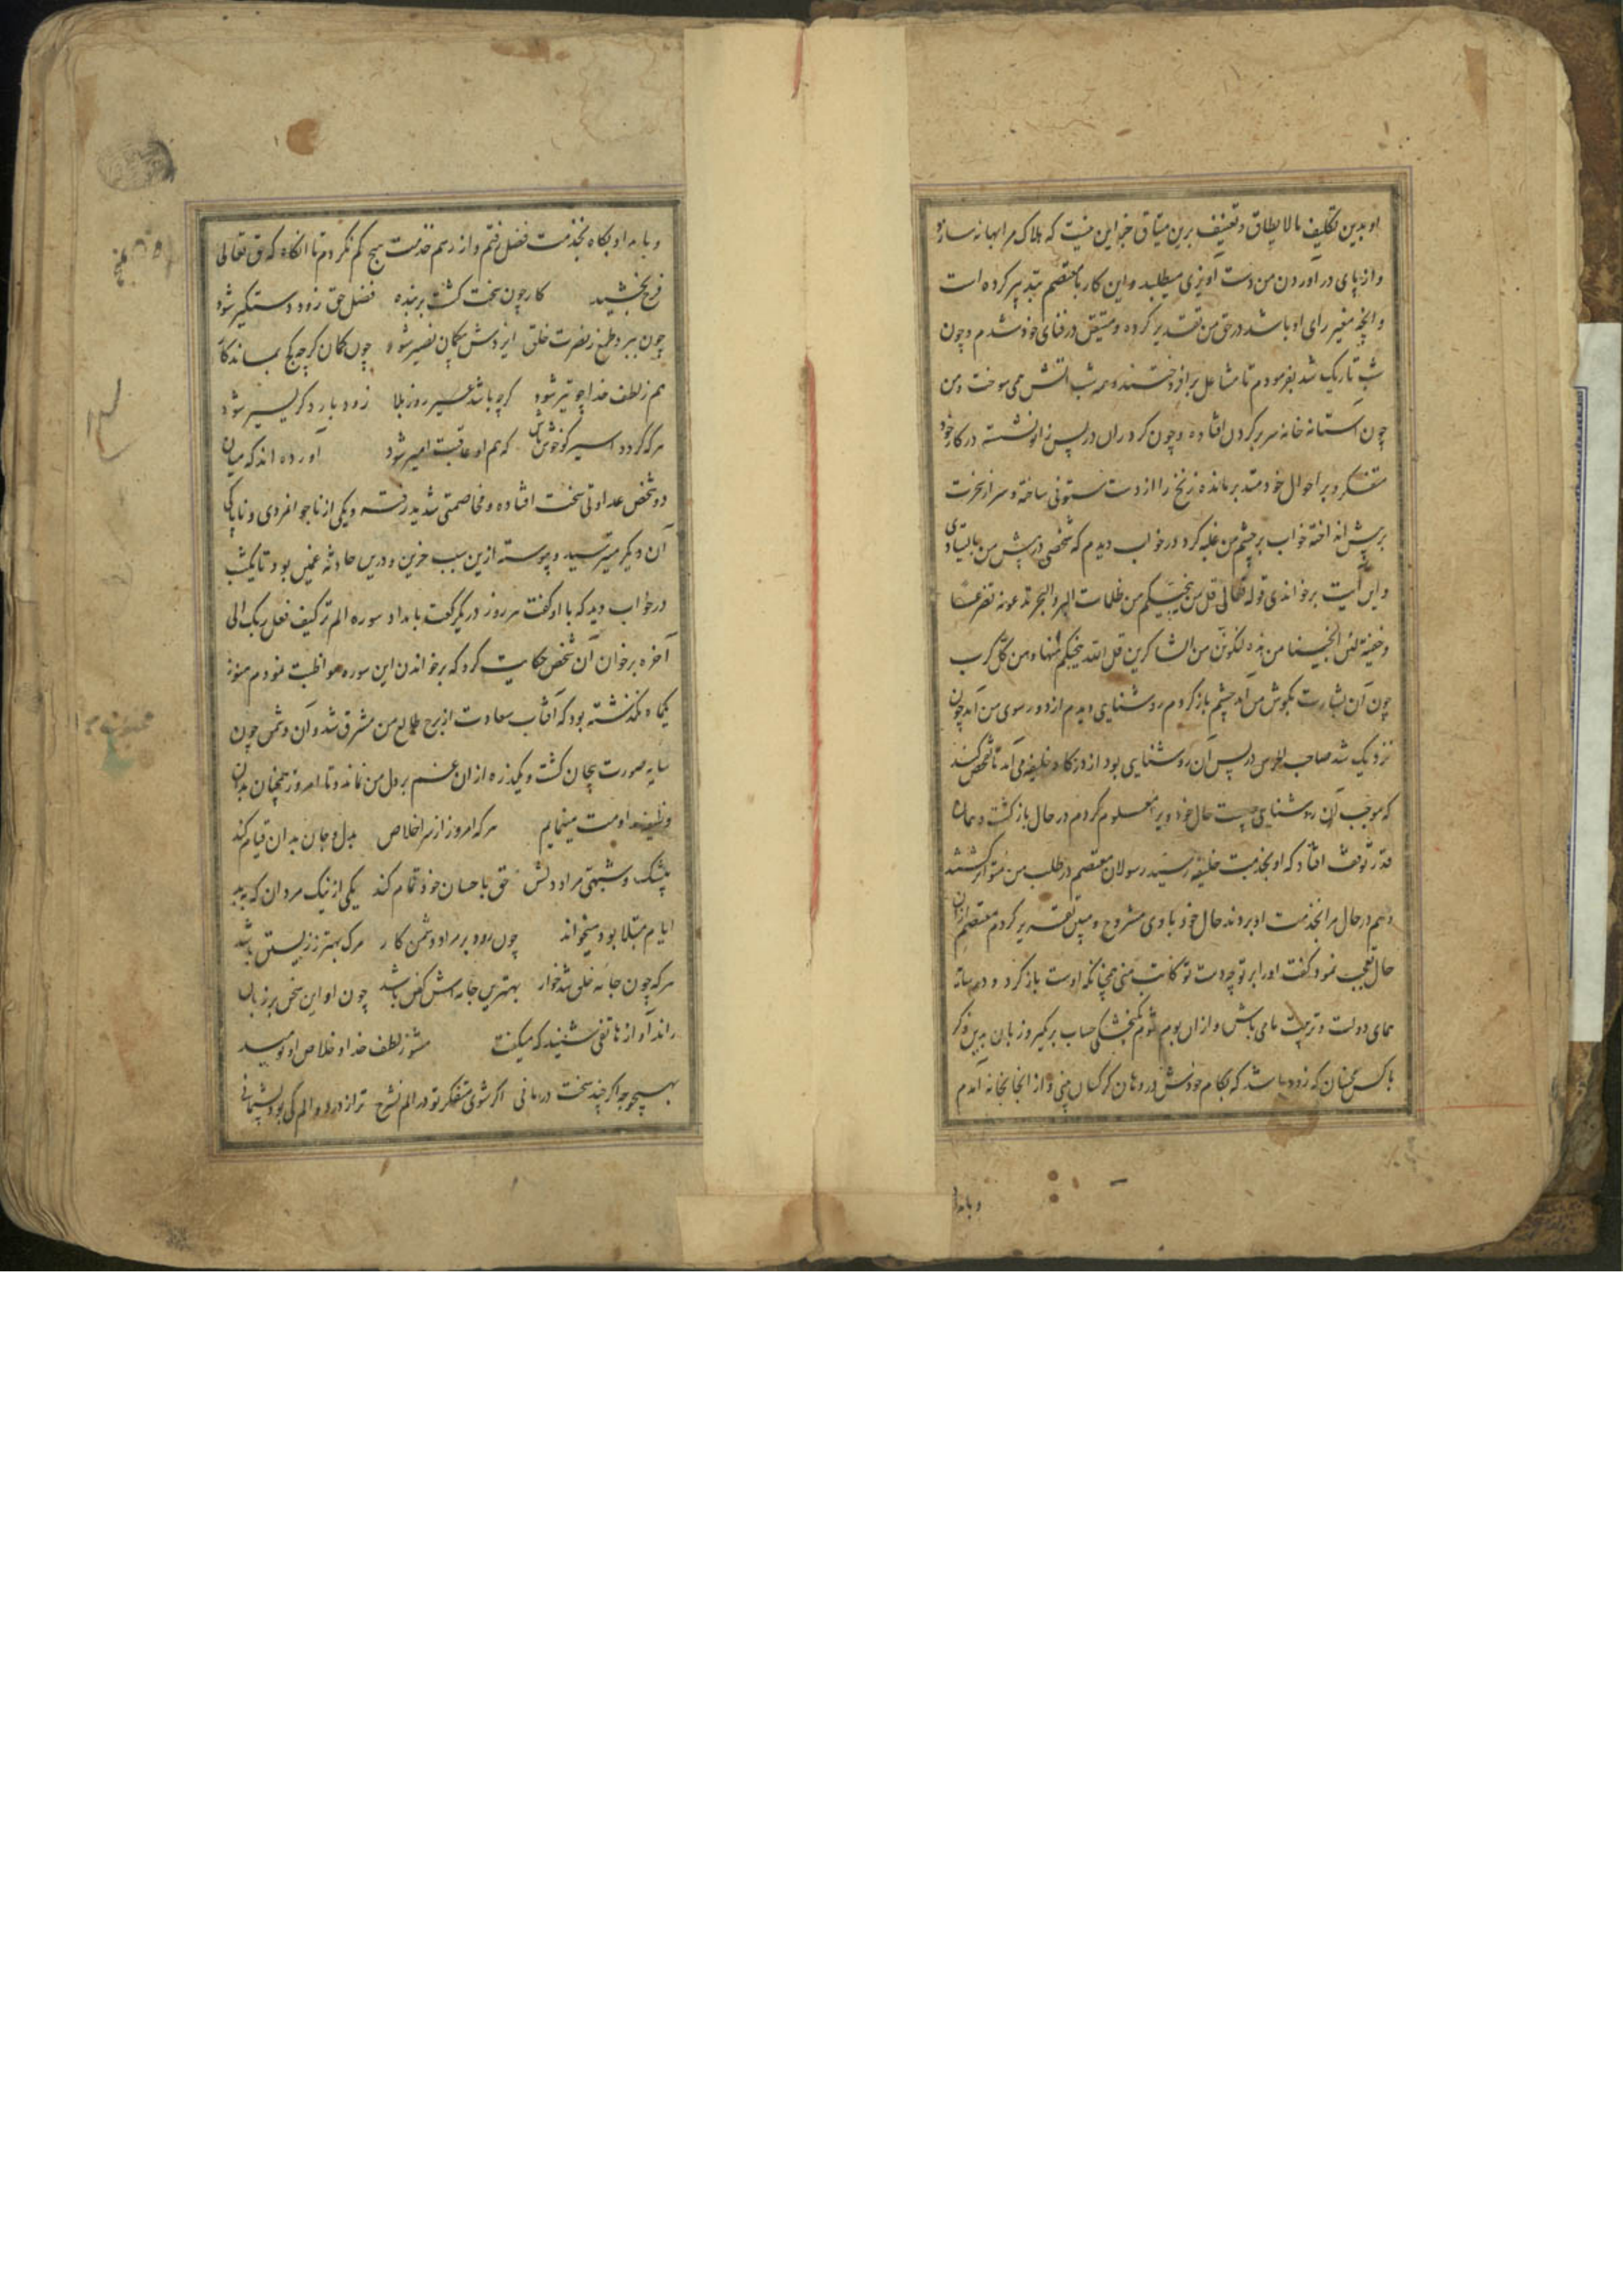 او بدین تکلیف مالایطاق و تعنیف برین میثاق جز این نیست که هلاک مرا بهانه سازد
و از پای در آوردن من دست آویزی میطلبد و این کار با معتصم بتدبیر کرده است
و آنچه متغیر رای او باشد در حق من تقدیر کرده و متیقن در فنای خود شدم و چون
شب تاریک شد بفرمودم تا مشاعل برافروختند و همه شب آتش می سوخت و من
چون آستانه خانه سر بر کردن افتاده و چون کردران در پس زانو نشسته در کار خود
متفکر و بر احوال خود متدبر مانده زنخ را از دست ستونی ساخته و سر از حسرت
بر پیش انداخته خواب بر چشم من غلبه کرد در خواب دیدم که شخصی در پیش من بایستادی
و این آیت برخواندی قوله تعالی قل من ینجیکم من ظلمات البر و البحر تدعونه تضرعا
و خفیة لئن انجیتنا من هذه لنکونن من الشاکرین قل الله ینجیکم منها و من کل کرب
چون آن بشارت بکوش من آمد چشم باز کردم روشنایی دیدم از دور سوی من آمد چون
نزدیک شد صاحب الحرس در پس آن روشنایی بود از درکاه خلیفه می آمد تا تفحص کند
که موجب آن روشنایی چیست حال خود ویرا معلوم کردم در حال باز کشت و همان
قدر توقف افتاد که او بخدمت خلیفه رسید رسولان معتصم در طلب من متواتر کشتند
و هم در حال مرا بخدمت او بردند حال خود با وی مشروح و مبین تقریر کردم معتصم ازان
حال تعجب نمود کفت اورا بر تو چه دست تو کاتب منی همچنانکه اوست باز کرد و در سایه
همای دولت و تربیت ما می باش و ازان بوم شوم بکنجشکی حساب بر مکیر و زبان بدین ذکر
باک همچنان که زود باشد که بکام خودش در دهان کرکسان بینی و از انجا بخانه آمدم
و بامداد
و بامداد بکاه بخدمت فضل رفتم و از رسم خدمت هیچ کم نکردم تا آنکاه که حق تعالی
فرج بخشید کار چون سخت کشت بر بنده فضل حق زود دستکیر شود
چون ببرد طمع ز نصرت خلق ایزدش بیکمان نصیر شود چون کمان کرچه کج بماند کار
هم ز لطف خدا چو تیر شود کرچه باشد عسیر روز بلا زود باردکر یسیر شود
هر که کردد اسیر کو خوش باش که هم او عاقبت امیر شود آورده اند که میان
دو شخص عداوتی سخت افتاده و مخاصمتی شدید رفته و یکی از ناجوامردی و ناپاکی
آن دیکر میترسید و پیوسته ازین سبب حزین و درین حادثه غمین بود تا یکشب
در خواب دید که با او کفت هر روز در یکرکعت بامداد سوره الم تر کیف فعل ربک الی
آخره برخوان آن شخص حکایت کرد که برخواندن این سوره مواظبت نمودم هنوز
یکماه نکذشته بود که آفتاب سعادت از برج طالع من مشرق شد و آن دشمن چون
سایه صورت بیجان کشت و یکذره ازان غم بر دل من نماند و تا امروز همچنان بدان
وظیفه مداومت مینمایم هر که امروز از سر اخلاص بدل و جان بدان قیام کند
بیشک و شبهتی مراد دلش حق باحسان خود تمام کند یکی از نیک مردان که ببد
ایام مبتلا بود میخواند چون رود بر مراد دشمن کار مرک بهتر ز زیستن باشد
هر که چون جامه خلق شد خوار بهترین جامه اش کفن باشد چون او این سخن بر زبان
راند آواز هاتفی شنید که میکفت مشو ز لطف خدا و خلاص او نومید
بهیچوجه اکر چند سخت درمانی اکر شوی متفکر تو در الم نشرح ترا ز درد و الم کی بود پشیمانی